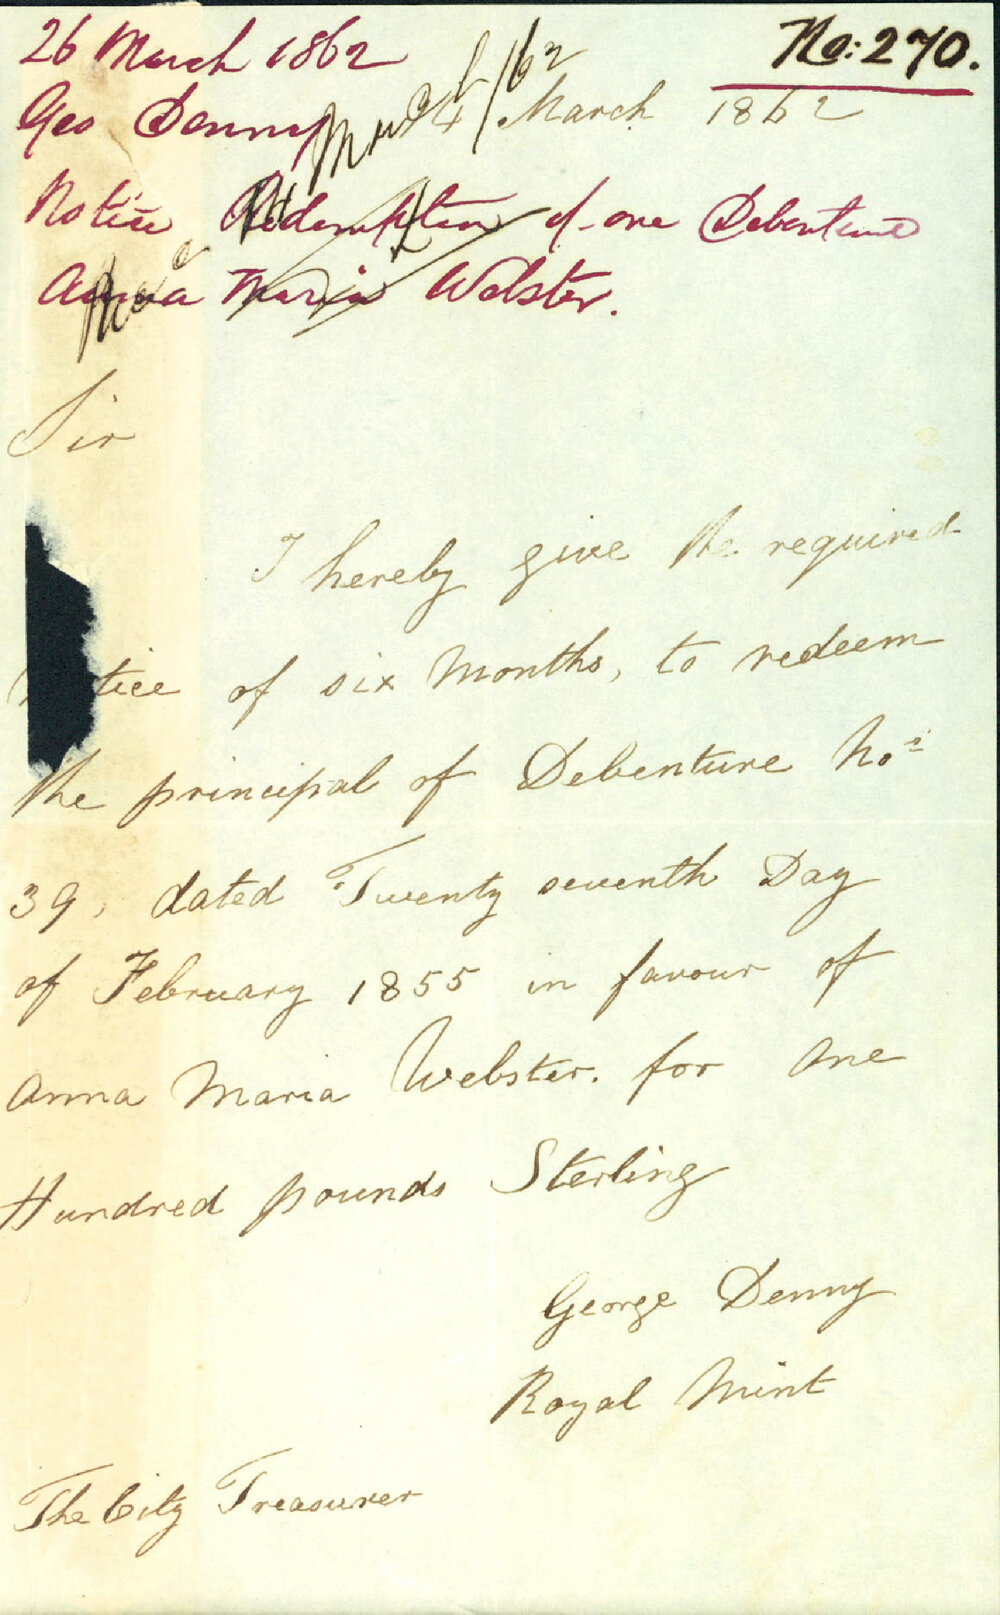 No: 270.
26 March 1862
Geo Denny
March 1862
Notice Redemption of one Debenture
Anna Maria Webster.
Sir
I hereby give the required
tice of six Months, to redeem
the principal of Debenture No.
39, dated Twenty seventh Day
of February 1855 in favour of
Anna Maria Webster. for One
Hundred pounds Sterling
George Denny
Royal Mint
The City Treasurer